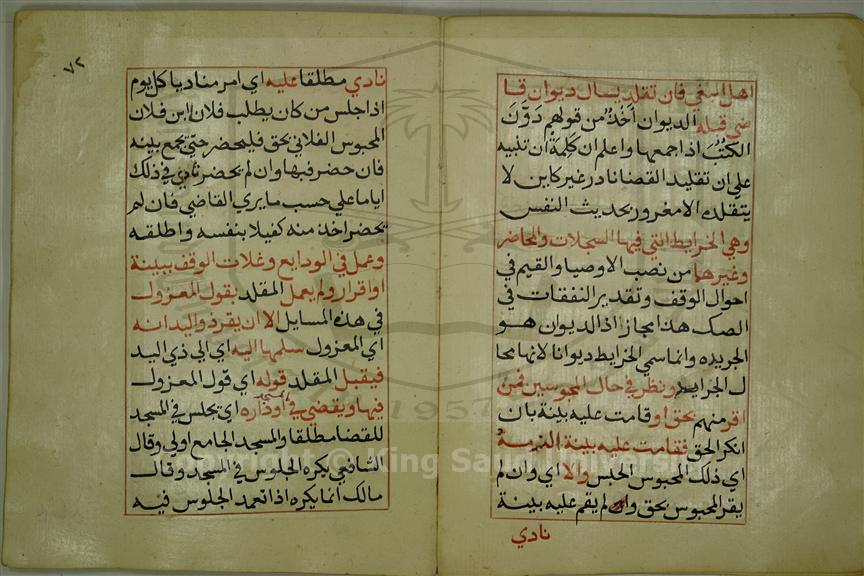 اهل البغي فان تقلد يسال ديوان قا
ضي قبله الديوان أخذ من قولهم دَوَّنَ
الكتُبَ اذا جمعها واعلم ان كلمة ان تنبيه
علي ان تقليد القضا نادر غير كاين لا
يتقلده الا مغرور بحديث النفس
وهي الخرايط التي فيها السجلات والمحاضر
وغيرها من نصب الاوصيا والقيم في
احوال الوقف وتقدير النفقات في
الصك هذا مجاز اذ الديوان هو
الجريده وانما سمي الخرايط ديوانا لانها محا
ل الجرايد ونظر في حال المحبوسين فمن
اقر منهم بحق او قامت عليه بينة بان
انكر الحق فقامت عليه بينة الزمه
اي ذلك المحبوس الحبس والا اي وان لم
يقر المحبوس بحق ولم يقم عليه بينة
نادي
٧٢
نادي مطلقا عليه اي امر مناديا كل يوم
اذا جلس من كان يطلب فلان ابن فلان
المحبوس الفلاني بحق فليحضر حتي يجمع بينه
فان حضر فبها وان لم يحضر نادي في ذلك
اياما علي حسب ما يري القاضي فان لم
يحضر اخذ منه كفيلا بنفسه واطلقه
وعمل في الودايع وغلات الوقف ببينة
او اقرار ولم يعمل المقلد بقول المعزول
في هذه المسايل الا ان يقر ذو اليد انه
اي المعزول سلمها اليه اي الي ذي اليد
فيقبل المقلد قوله اي قول المعزول
فيها ويقضي في المسجد او داره اي يجلس في المسجد
للقضا مطلقا والمسجد الجامع اولي وقال
الشافعي يكره الجلوس في المسجد وقال
مالك انما يكره اذا تعمد الجلوس فيه
Copyright © King Saud University
1957